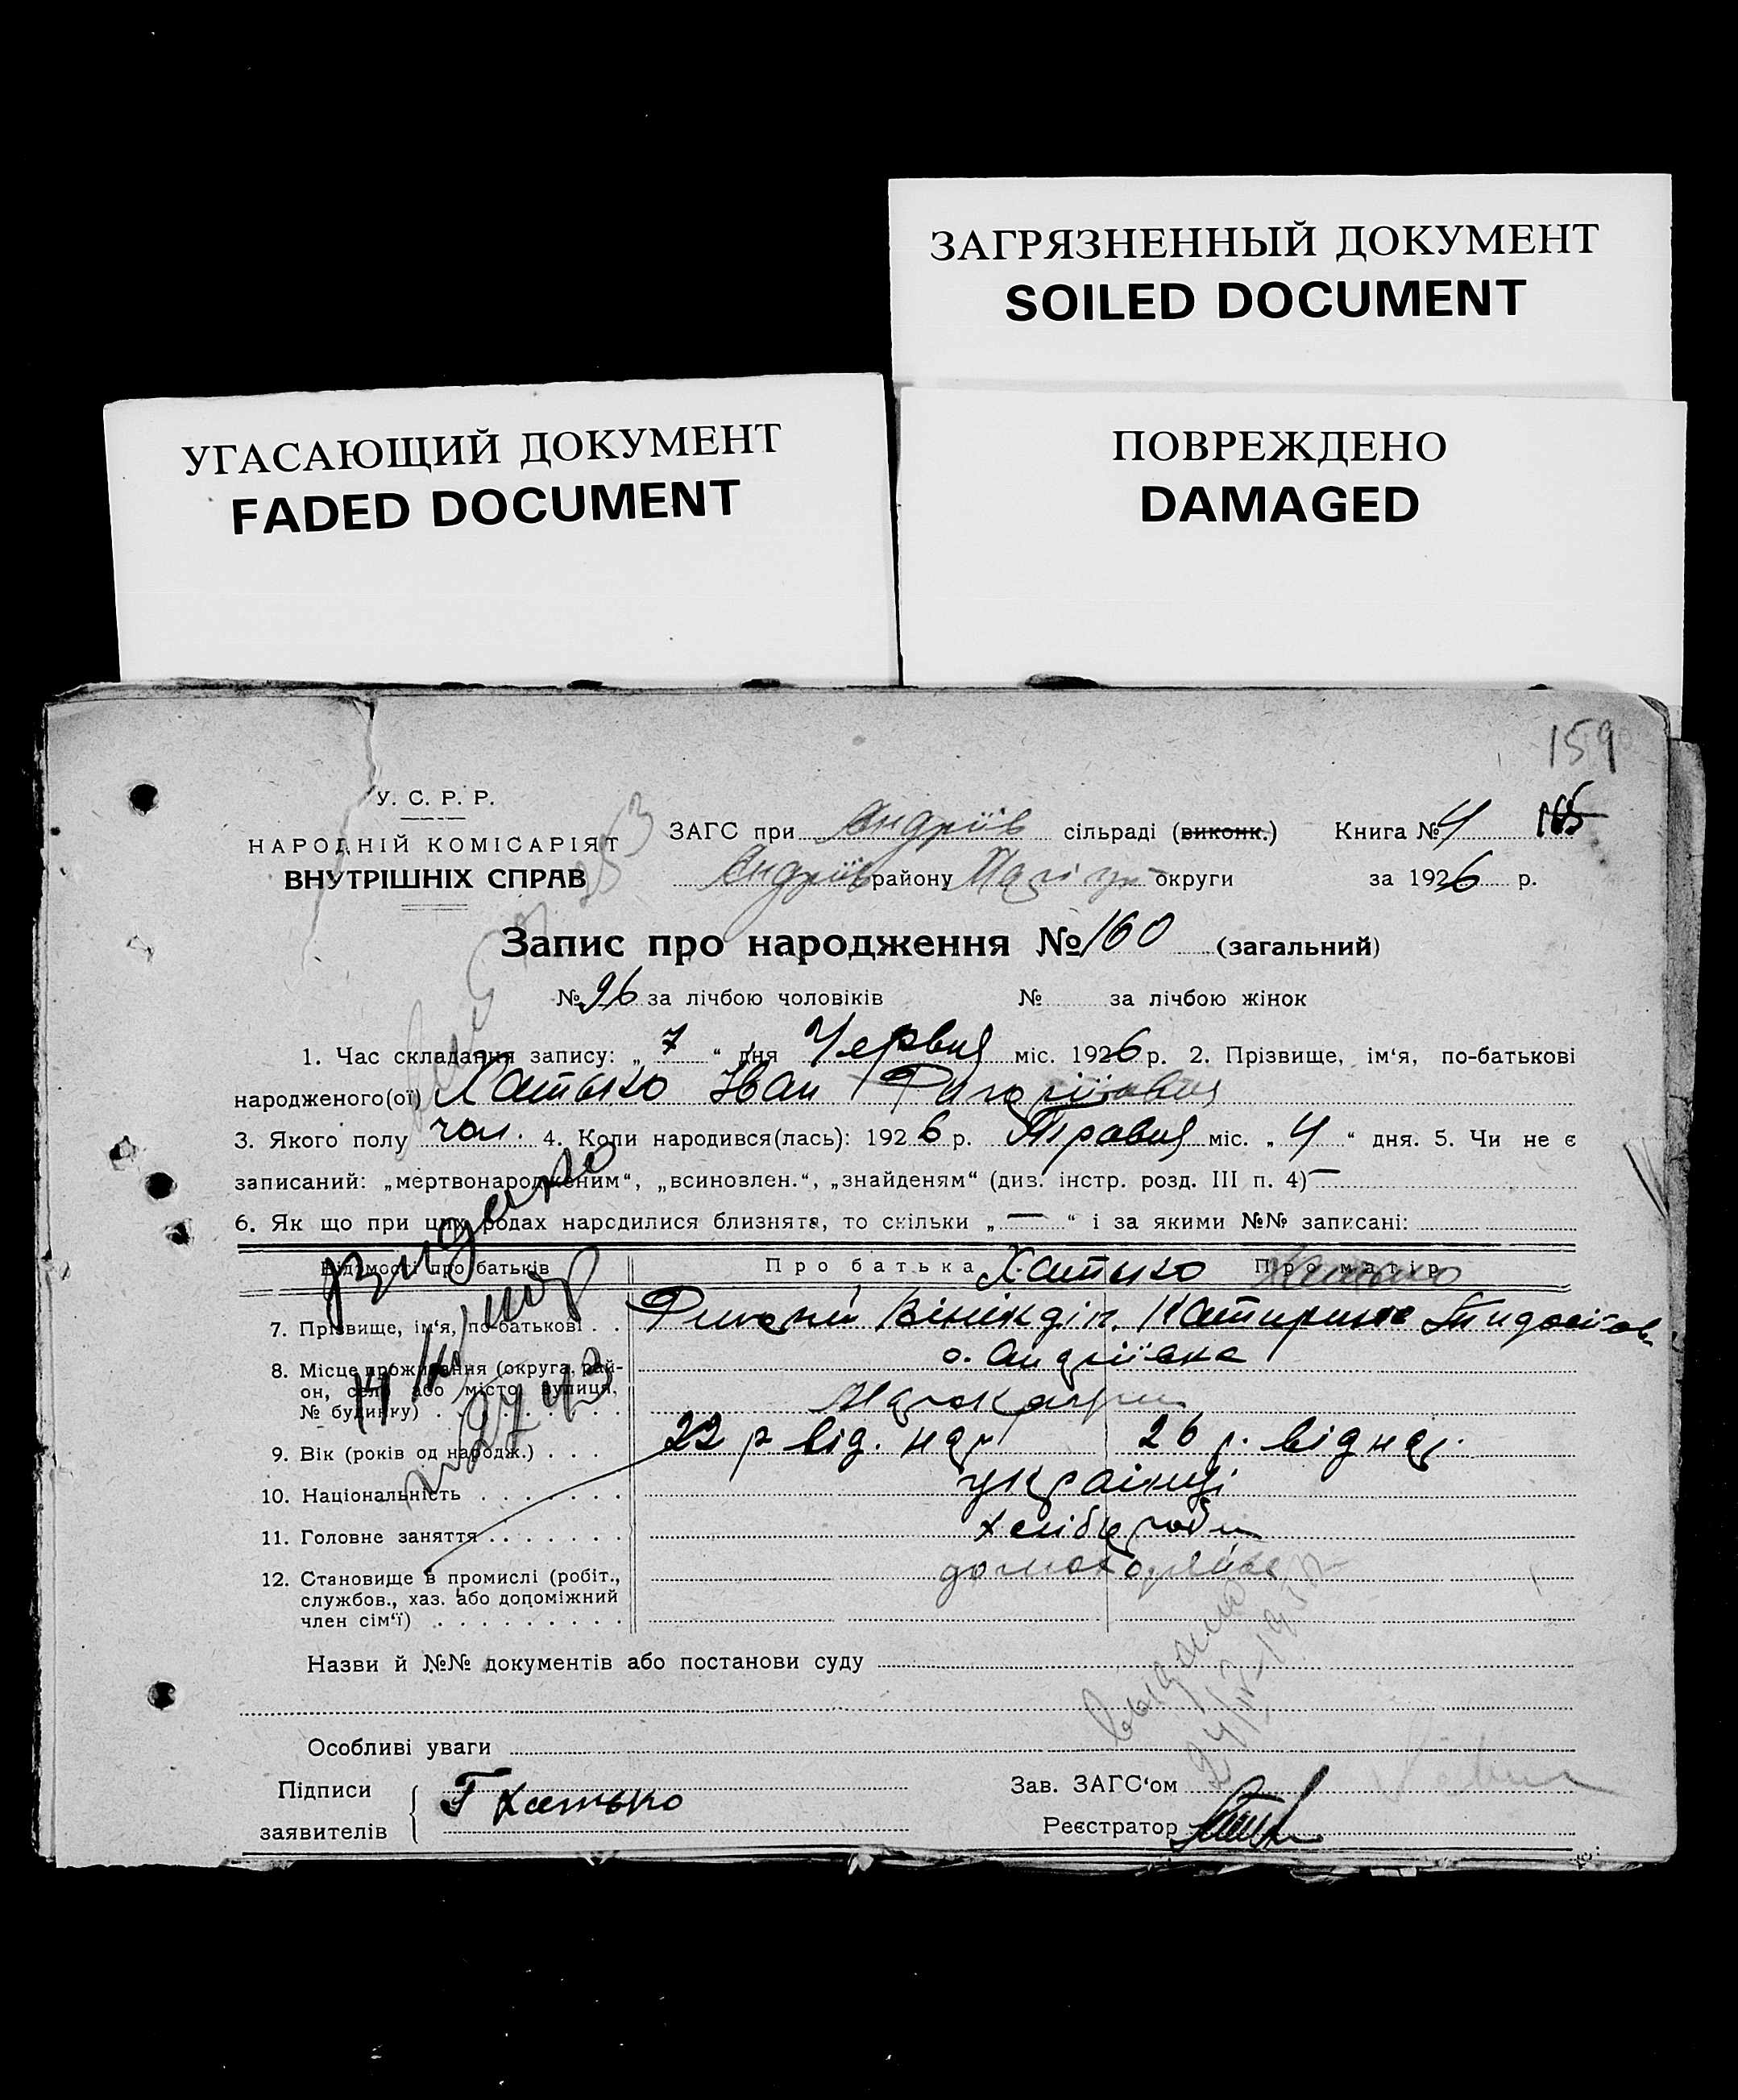 ЗАГРЯЗНЕННЫЙ ДОКУМЕНТ
SOILED DOCUMENT
УГАСАЮЩИЙ ДОКУМЕНТ
FADED DOCUMENT
ПОВРЕЖДЕНО
DAMAGED
159
У. С. Р. Р.
НАРОДНІЙ КОМІСАРІЯТ
ВНУТРІШНІХ СПРАВ
ЗАГС при Андріїв сільраді (виконк.) Книга № 4 165
Андріїв району округи за 1926 р.
Запис про народження № 160 (загальний)
№ 96 за лічбою чоловіків № за лічбою жінок
1. Час складання запису: „ 7 “ дня Червня міс. 1926 р. 2. Прізвище, ім‘я, по-батькові
народженого(ої) Хатько Іван
3. Якого полу чол. 4. Коли народився(лась): 1926 р. Травня міс. „ 4 “ дня. 5. Чи не є
записаний: „мертвонародженим“, „всиновлен.“, „знайденям“ (див. інстр. розд. III п. 4) —
6. Як що при цих родах народилися близнята, то скільки „ — “ і за якими №№ записані:
Відомості про батьків Про батька Хатько Про матір
7. Прізвище, ім‘я, по-батькові . . Катирина
8. Місце проживання (округа, рай- с. Андріївка
он, село або місто, вулиця,
№ будинку)
9. Вік (років од народж.) . . . 22 р від. нар 26 р. від нар.
10. Національність українці
11. Головне заняття хлібороби
12. Становище в промислі (робіт.,
службов., хаз. або допоміжний
член сім‘ї)
Назви й №№ документів або постанови суду
Особливі уваги
Підписи
заявителів Г Хатько
Зав. ЗАГС‘ом
Реєстратор